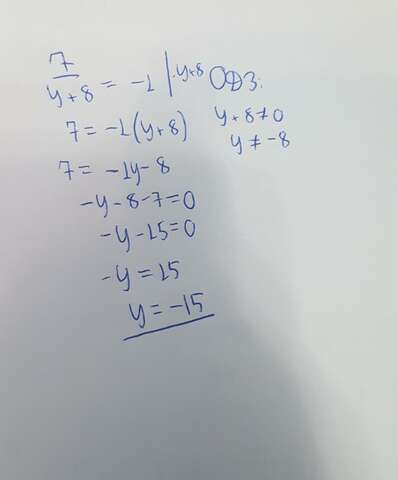 7/(y+8) = -1 | ·y+8 ОДЗ:
7 = -1(y+8) y+8≠0
7 = -1y-8 y≠-8
-y-8-7=0
-y-15=0
-y=15
y=-15